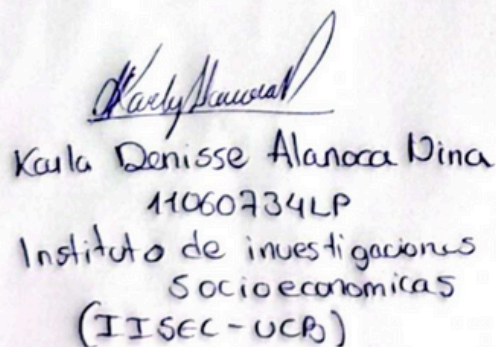 Karla Denisse Alanoca Nina
11060734LP
Instituto de investigaciones
socioeconomicas
(IISEC-UCB)